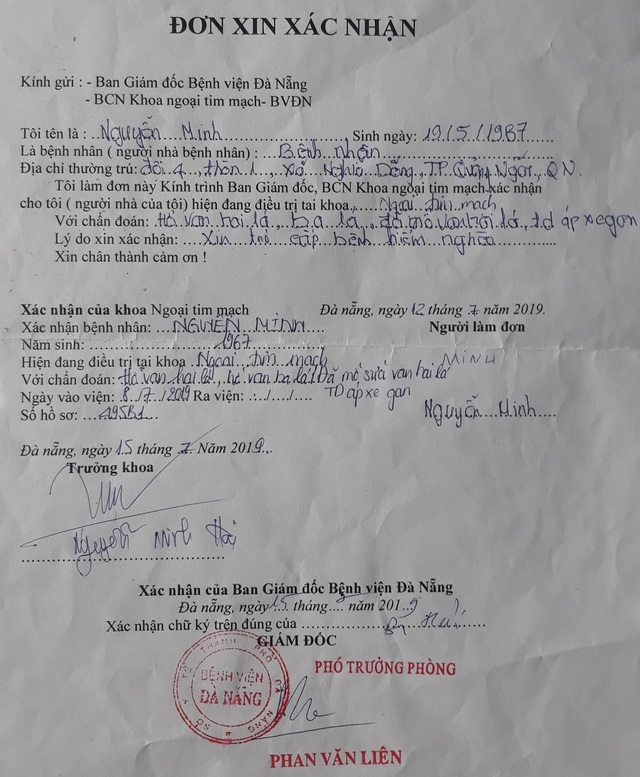 ĐƠN XIN XÁC NHẬN
Kính gửi : - Ban Giám đốc Bệnh viện Đà Nẵng
- BCN Khoa ngoại tim mạch- BVĐN
Tôi tên là : ...Nguyễn....Minh.................... Sinh ngày: 19/5/1967
Là bệnh nhân ( người nhà bệnh nhân) : ....Bệnh nhân
Địa chỉ thường trú: đội 4, thôn 1, xã Nghĩa Dõng, TP. Quảng Ngãi, QN.
Tôi làm đơn này Kính trình Ban Giám đốc, BCN Khoa ngoại tim mạch xác nhận
cho tôi ( người nhà của tôi) hiện đang điều trị tai khoa....Ngoại tim mạch
Với chẩn đoán: Hở van hai lá, ba lá, đã mổ van hai lá, td áp xe gan
Lý do xin xác nhận: ....Xin trợ cấp bệnh hiểm nghèo
Xin chân thành cảm ơn !
Xác nhận của khoa Ngoại tim mạch
Đà nẵng, ngày 12 tháng 7 năm 2019.
Xác nhận bệnh nhân: ...NGUYỄN MINH....
Người làm đơn
Năm sinh:..............1967
Hiện đang điều trị tại khoa Ngoại tim mạch
MINH
Với chẩn đoán: Hở van hai lá, hở van ba lá / Đã mổ sửa van hai lá
TD áp xe gan
Ngày vào viện: 8/7/2019 Ra viện: .../..../....
Nguyễn...Minh....
Số hồ sơ: ....49581....
Đà nẵng, ngày 15 tháng 7. Năm 2019..
Trưởng khoa
Nguyễn Minh Hải
Xác nhận của Ban Giám đốc Bệnh viện Đà Nẵng
Đà nẵng, ngày 15 tháng... năm 2019
Xác nhận chữ ký trên đúng của ...............
GIÁM ĐỐC
SỞ Y TẾ THÀNH PHỐ ĐÀ NẴNG
BỆNH VIỆN
ĐÀ NẴNG
PHÓ TRƯỞNG PHÒNG
PHAN VĂN LIÊN